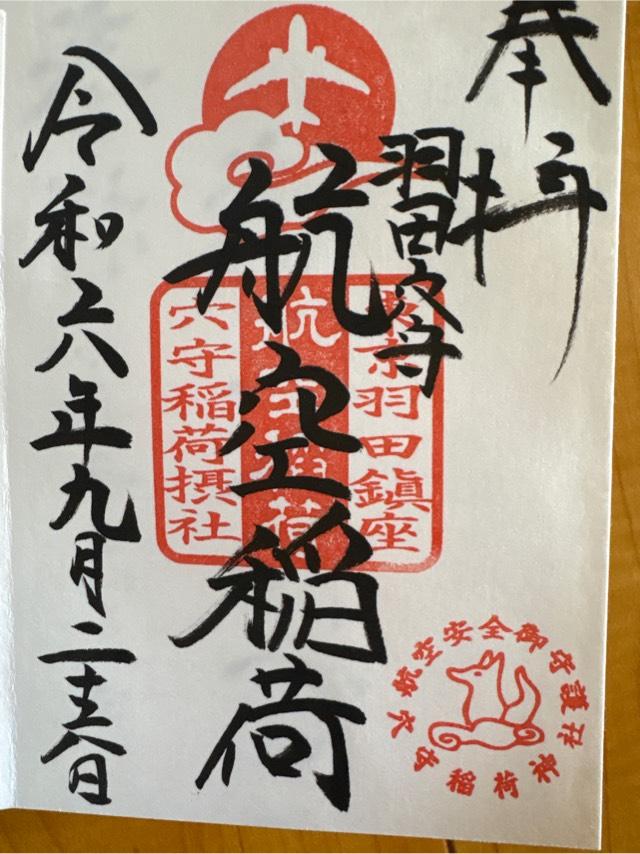 奉拝
羽田穴守
航空稲荷
令和六年九月二十六日
東京羽田鎮座
航空稲荷
穴守稲荷摂社
航空安全御守護
穴守稲荷神社